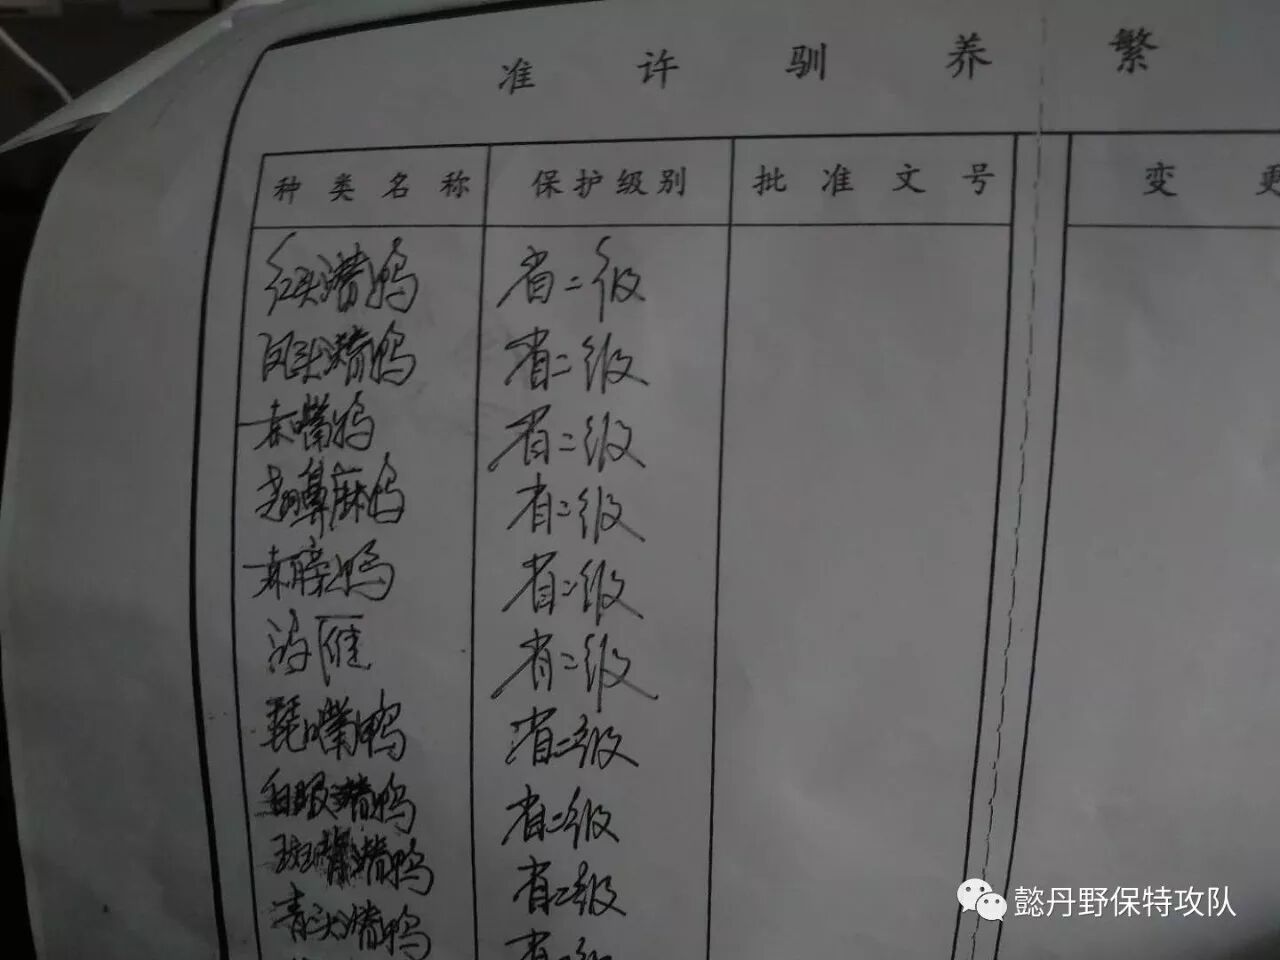 准许驯养繁
种类名称 保护级别 批准文号 变更
红头潜鸭 省二级
凤头潜鸭 省二级
赤嘴鸭 省二级
翘鼻麻鸭 省二级
赤膀鸭 省二级
鸿雁 省二级
琵嘴鸭 省二级
白眼潜鸭 省二级
斑背潜鸭 省二级
青头潜鸭
懿丹野保特攻队